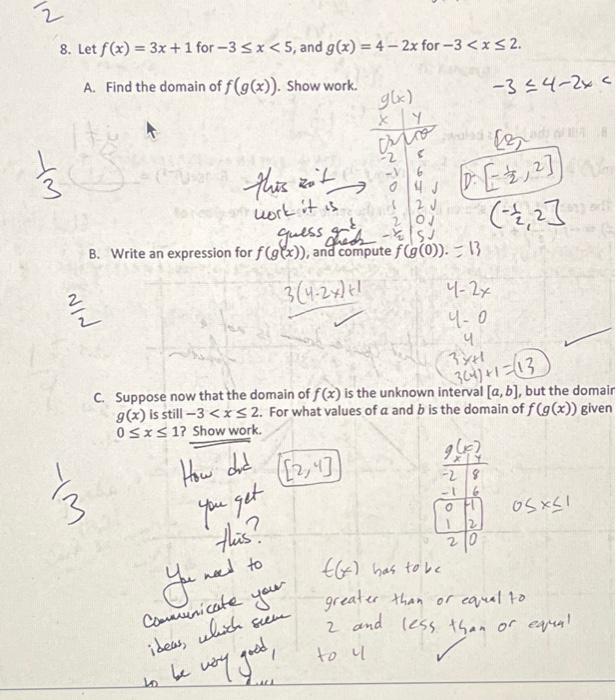 2
8. Let f(x) = 3x + 1 for −3 ≤ x < 5, and g(x) = 4 − 2x for −3 < x ≤ 2.
A. Find the domain of f(g(x)). Show work.
-3 ≤ 4-2x <
g(x)
x | y
-2 | 8
-1 | 6
0 | 4 ✓
1 | 2 ✓
2 | 0 ✓
-1/2 | 5 ✓
D: [-1/2, 2]
(-1/2, 2]
1/3
this isn't →
work it is
guess and
check
B. Write an expression for f(g(x)), and compute f(g(0)). = 13
2/2
3(4-2x)+1
✓
4-2x
4-0
4
3x+1
3(4)+1=13
✓
C. Suppose now that the domain of f(x) is the unknown interval [a, b], but the domain
g(x) is still −3 < x ≤ 2. For what values of a and b is the domain of f(g(x)) given
0 ≤ x ≤ 1? Show work.
1/3
[2,4]
How did
you get
this?
You need to
communicate your
ideas, which seem
to be very good,
g(x)
x | y
-2 | 8
-1 | 6
0 | 4
1 | 2
2 | 0
0≤x≤1
f(x) has to be
greater than or equal to
2 and less than or equal
to 4 ✓